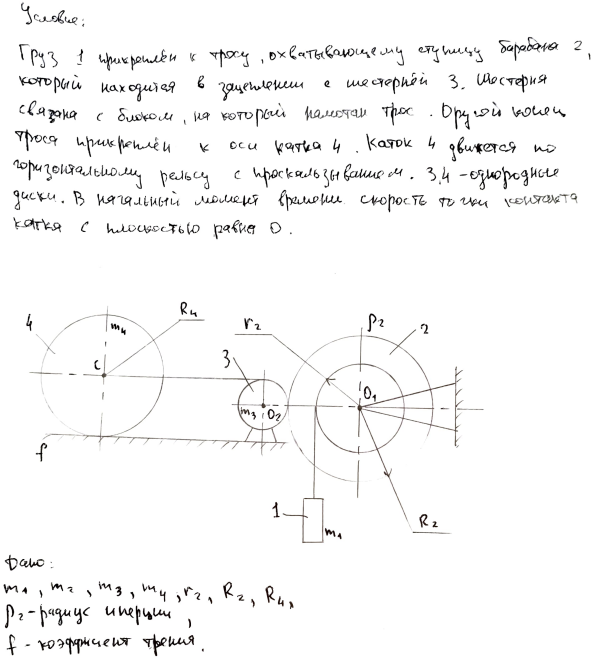 Условие:
Груз 1 прикреплён к тросу, охватывающему ступицу барабана 2,
который находится в зацеплении с шестерней 3. Шестерня
связана с блоком, на который намотан трос. Другой конец
троса прикреплён к оси катка 4. Каток 4 движется по
горизонтальному рельсу с проскальзыванием. 3,4 - однородные
диски. В начальный момент времени скорость точки контакта
катка с плоскостью равна 0.
4
m₄
R₄
r₂
ρ₂
2
C
3
m₃
O₂
O₁
f
1
m₁
R₂
Дано:
m₁, m₂, m₃, m₄, r₂, R₂, R₄,
ρ₂ - радиус инерции,
f - коэффициент трения.